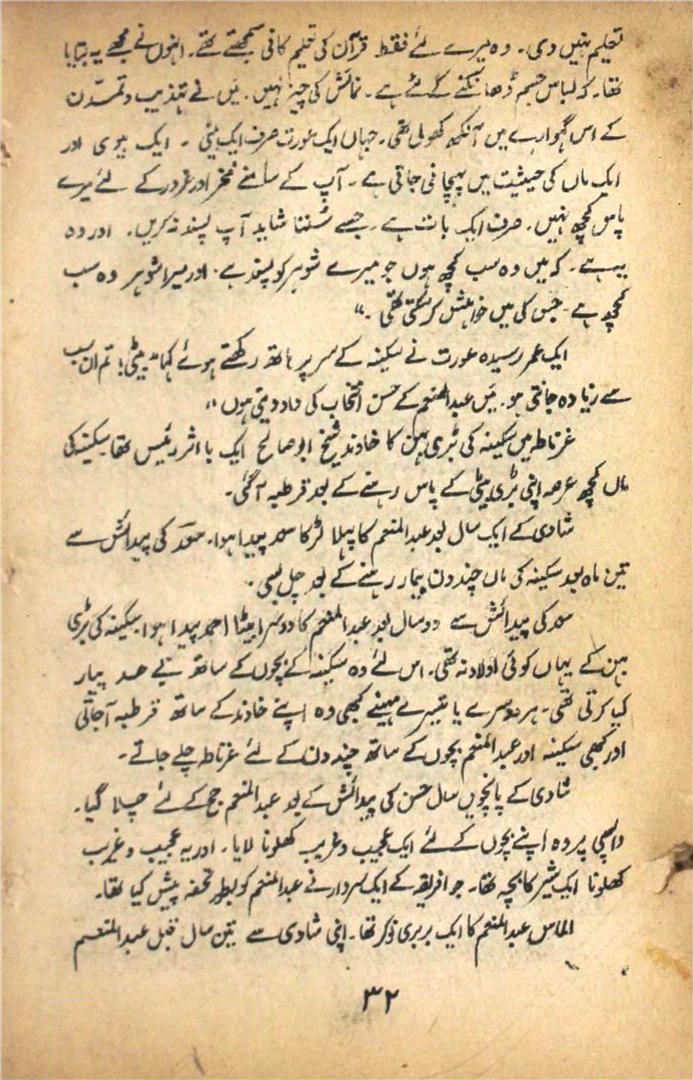 تعلیم نہیں دی۔ وہ میرے لئے فقط قرآن کی تعلیم کافی سمجھتے تھے۔ انہوں نے مجھے یہ بتایا
تھا۔ کہ لباس جسم ڈھانکنے کے لئے ہے۔ نمائش کی چیز نہیں۔ میں نے تہذیب و تمدن
کے اس گہوارے میں آنکھ کھولی تھی۔ جہاں ایک عورت صرف ایک بیٹی ۔ ایک بیوی اور
ایک ماں کی حیثیت میں پہچانی جاتی ہے۔ آپ کے سامنے فخر اور غرور کے لئے میرے
پاس کچھ نہیں۔ صرف ایک بات ہے۔ جسے سُننا شاید آپ پسند نہ کریں۔ اور وہ
یہ ہے۔ کہ میں وہ سب کچھ ہوں جو میرے شوہر کو پسند ہے۔ اور میرا شوہر وہ سب
کچھ ہے۔ جس کی میں خواہش کر سکتی تھی۔“
ایک عمر رسیدہ عورت نے سکینہ کے سر پر ہاتھ رکھتے ہوئے کہا ”بیٹی! تم ان سب
سے زیادہ جانتی ہو۔ میں عبدالمنعم کے حسن انتخاب کی داد دیتی ہوں“
غرناطہ میں سکینہ کی بڑی بہن کا خاوند شیخ ابوصالح ایک با اثر رئیس تھا۔ سکینہ کی
ماں کچھ عرصہ اپنی بڑی بیٹی کے پاس رہنے کے بعد قرطبہ آ گئی۔
شادی کے ایک سال بعد عبدالمنعم کا پہلا لڑکا سعد پیدا ہوا۔ سعد کی پیدائش سے
تین ماہ بعد سکینہ کی ماں چند دن بیمار رہنے کے بعد چل بسی۔
سعد کی پیدائش سے دو سال بعد عبدالمنعم کا دوسرا بیٹا احمد پیدا ہوا۔ سکینہ کی بڑی
بہن کے یہاں کوئی اولاد نہ تھی۔ اس لئے وہ سکینہ کے بچوں کے ساتھ بے حد پیار
کیا کرتی تھی۔ ہر دوسرے یا تیسرے مہینے کبھی وہ اپنے خاوند کے ساتھ قرطبہ آ جاتی
اور کبھی سکینہ اور عبدالمنعم بچوں کے ساتھ چند دن کے لئے غرناطہ چلے جاتے۔
شادی کے پانچویں سال حسن کی پیدائش کے بعد عبدالمنعم حج کے لئے چلا گیا۔
واپسی پر وہ اپنے بچوں کے لئے ایک عجیب و غریب کھلونا لایا۔ اور یہ عجیب و غریب
کھلونا ایک شیر کا بچہ تھا۔ جو افریقہ کے ایک سردار نے عبدالمنعم کو بطور تحفہ پیش کیا تھا۔
الماس عبدالمنعم کا ایک بربری نوکر تھا۔ اپنی شادی سے تین سال قبل عبدالمنعم
۳۲